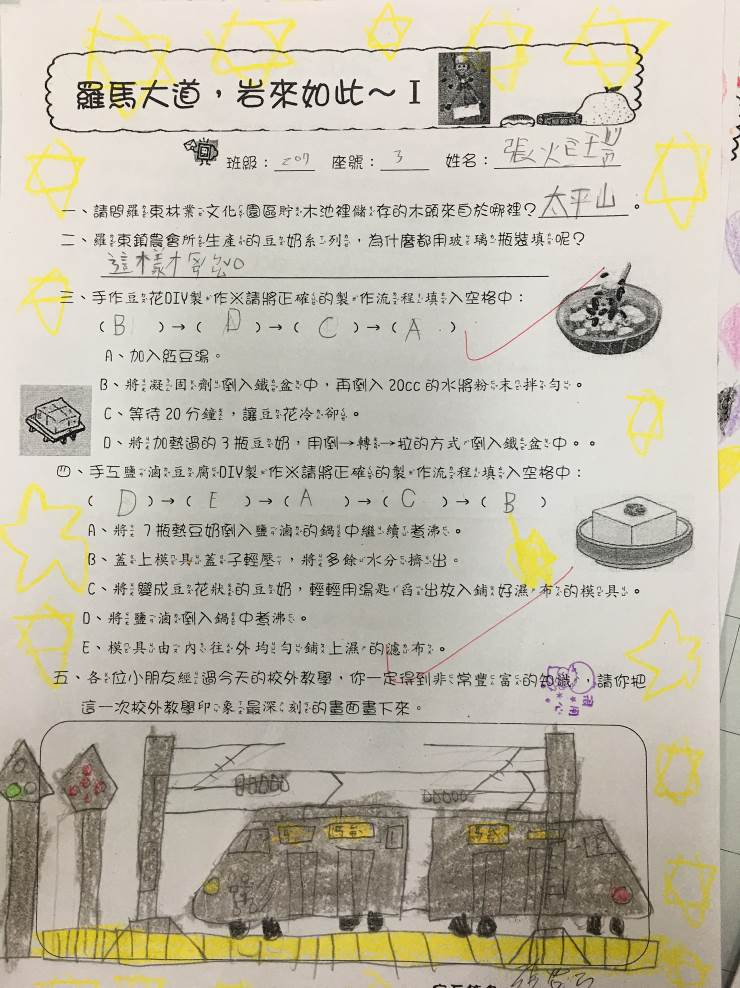 羅馬大道，岩來如此～I
班級：207 座號：3 姓名：張
一、請問羅東林業文化園區貯木池裡儲存的木頭來自於哪裡？太平山。
二、羅東鎮農會所生產的豆奶系列，為什麼都用玻璃瓶裝填呢？
這樣才
三、手作豆花DIY製作※請將正確的製作流程填入空格中：
（B）→（D）→（C）→（A）
A、加入紅豆湯。
B、將凝固劑倒入鐵盆中，再倒入20cc的水將粉末拌勻。
C、等待20分鐘，讓豆花冷卻。
D、將加熱過的3瓶豆奶，用倒→轉→拉的方式倒入鐵盆中。。
四、手互鹽滷豆腐DIY製作※請將正確的製作流程填入空格中：
（D）→（E）→（A）→（C）→（B）
A、將7瓶熱豆奶倒入鹽滷的鍋中繼續煮沸。
B、蓋上模具蓋子輕壓，將多餘水分擠出。
C、將變成豆花狀的豆奶，輕輕用湯匙舀出放入鋪好濕布的模具。
D、將鹽滷倒入鍋中煮沸。
E、模具由內往外均勻鋪上濕的濾布。
五、各位小朋友經過今天的校外教學，你一定得到非常豐富的知識，請你把
這一次校外教學印象最深刻的畫面畫下來。